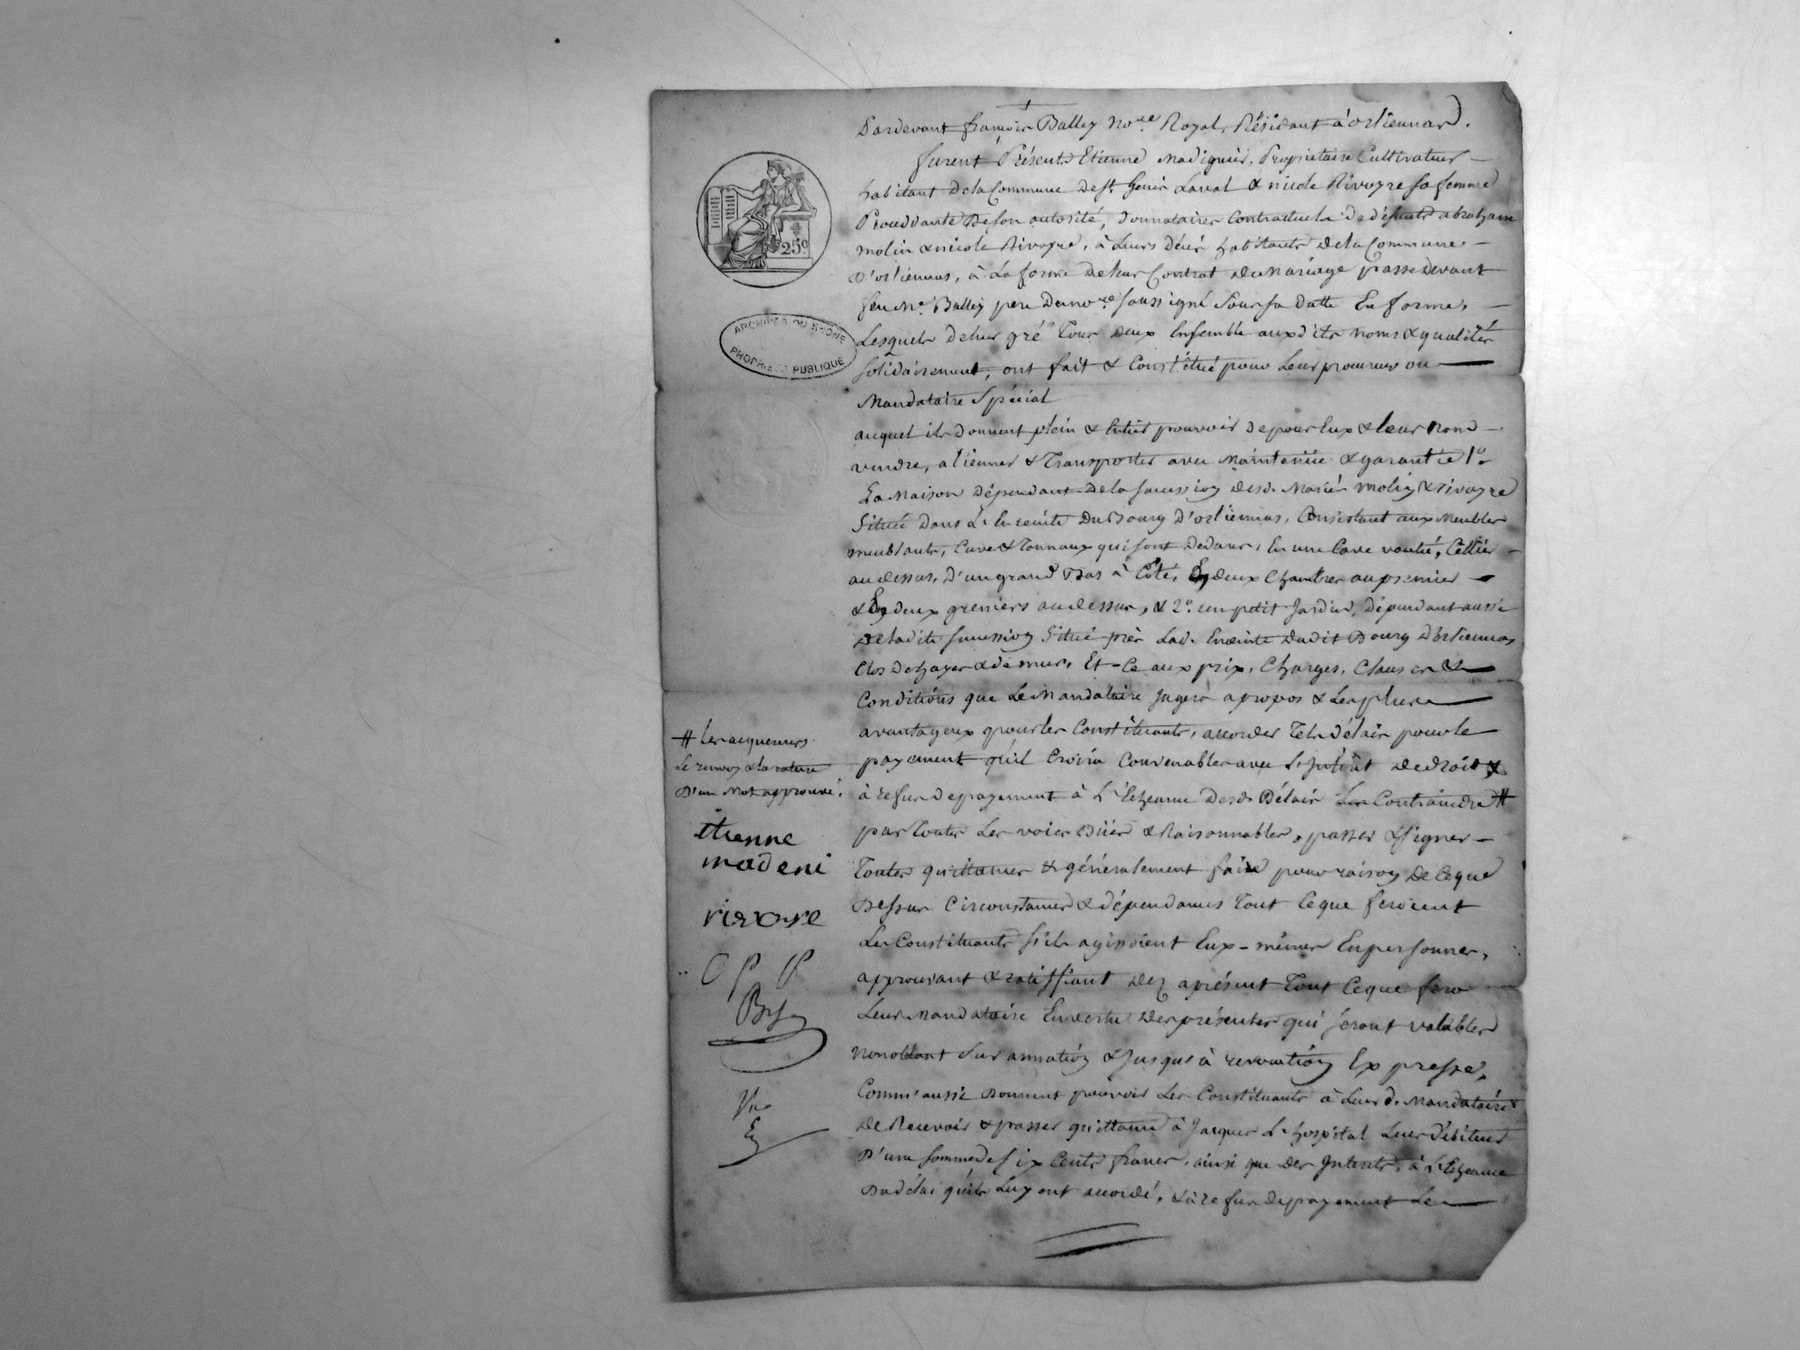 Pardevant françois Balley no.re Royal, Résidant à orliennas.
furent Présents Etienne Madignier, Propriétaire Cultivateur
habitant de la Commune de St. Genis Laval & nicole Rivoyre sa femme
Procédante de son autorité, donnataires Contractuels de défunts abraham
molin & nicole Rivoyre, à leurs décès habitants de la Commune
d'orliennas, à la forme de leur Contrat de Mariage passé devant
feu Me. Balley pere du no.re soussigné sous sa datte En forme,
Lesquels de leur gré Tous deux Ensemble aux dits noms & qualités
solidairement, ont fait & Constitué pour Leur procureur ou
Mandataire Spécial
auquel ils donnent plein & Entier pouvoir de pour Eux & leur nom
vendre, alienner & Transporter avec Maintenüe & garantie 1.o
La Maison dépendant de la succession desd. Mariés Molin & rivoyre
Située Dans L'Enceinte du Bourg d'orliennas, Consistant aux Meubles
meublants, Cuves & Tonnaux qui sont dedans, En une Cave voutée, Cellier
au dessus, d'un grand Bas à Côté, En deux Chambres au premier
& En deux greniers au dessus, & 2.o un petit Jardin, dépendant aussi
de ladite succession Situé près Lad. Enceinte dudit Bourg d'orliennas
Clos de hayes & de murs, Et Ce aux prix, Charges, Clauses &
Conditions que Le Mandataire Jugera apropos & Les plus
avantageux pour les Constituants, accorder Tels délais pour le
payement qu'il Croira Convenables avec L'Intérêt de droit, &
à refus de payement à L'Echeance desd. Délais Les Contraindre #
par Toutes Les voies Dües & Raisonnables, passer & signer
Toutes quittances & généralement faire pour raison de Ceque
Dessus Circonstances & dépendances Tout Ceque feroient
Les Constituants s'ils agissoient Eux-mêmes En personnes,
approuvant & ratiffiant dez aprésent Tout Ceque fera
Leur Mandataire En vertu des présentes qui seront valables
nonobstant Surannation & Jusques à revocation Expresse,
Comm'aussi donnent pouvoir Les Constituants à Leur d. Mandataire
de Recevoir & passer quittance à Jacques L'hospital Leur débiteur
d'une somme de six Cents francs, ainsi que des Interets, à L'Echeance
du délai qu'ils Luy ont accordé, & à refus de payement Le
# Les acquereurs
Le renvoy & la rature
d'un Mot approuvé.
etienne
madeni
rivoyre
25c
ARCHIVES DU RHÔNE
PROPRIÉTÉ PUBLIQUE